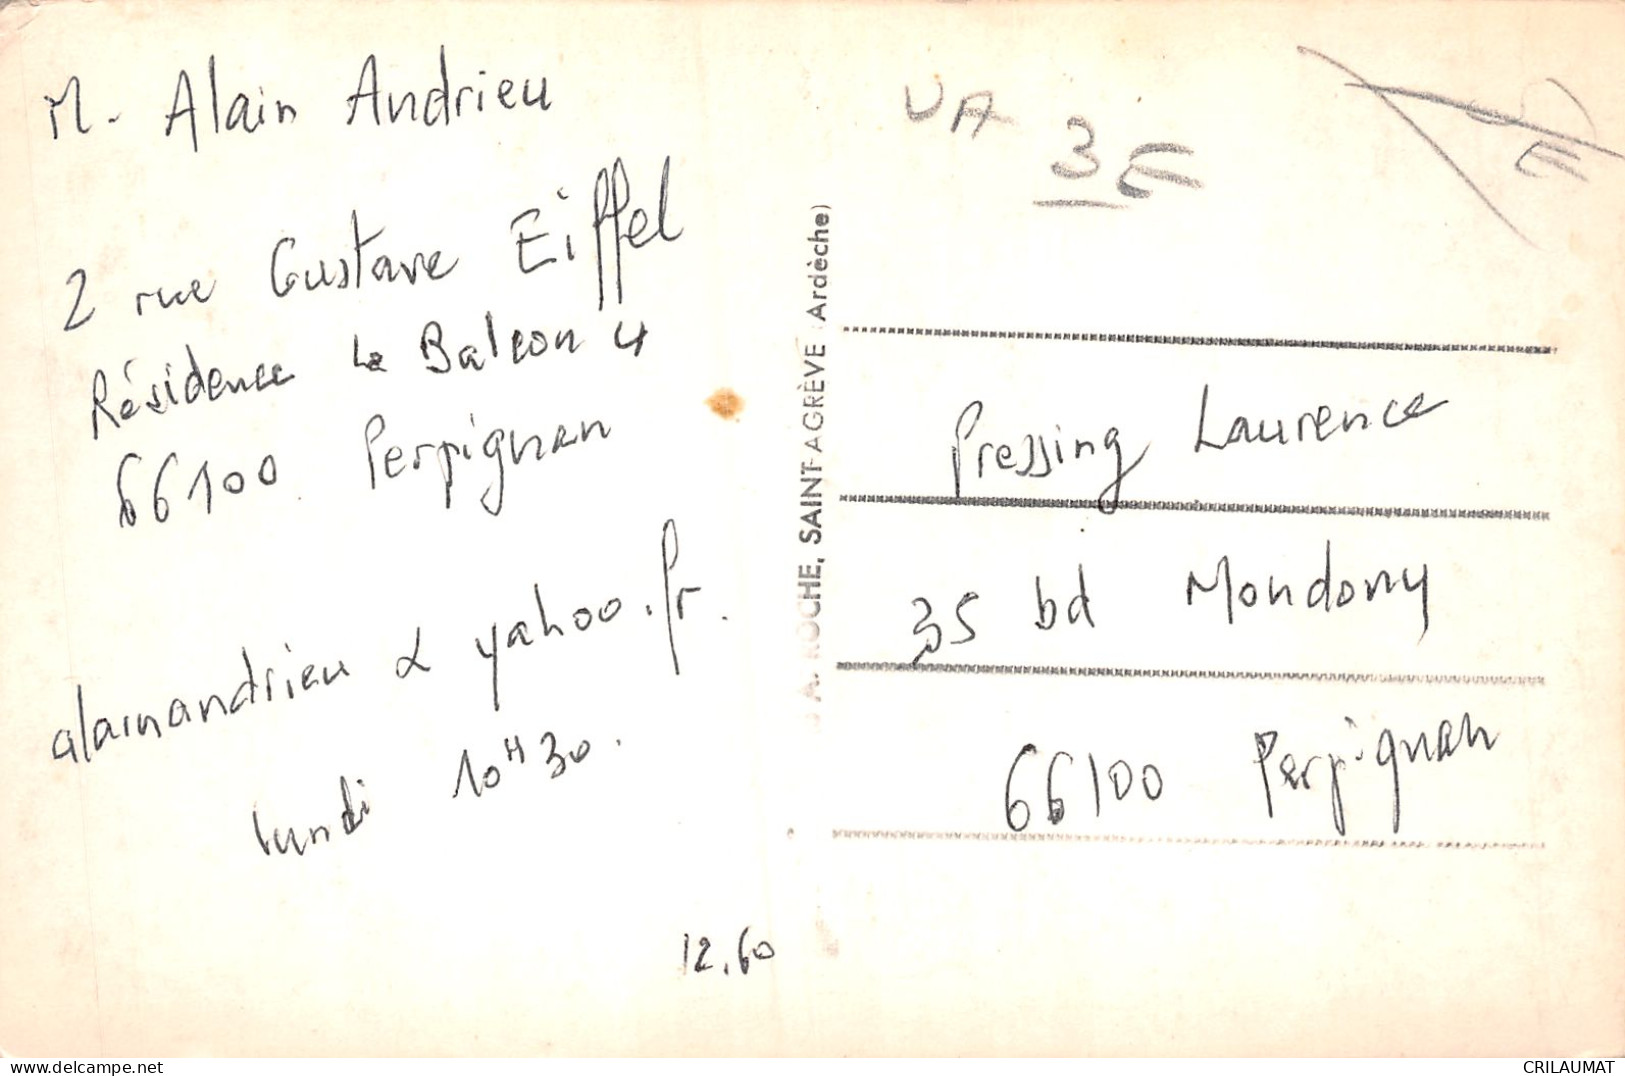 M. Alain Andrieu
2 rue Gustave Eiffel
Résidence Le Balcon 4
66100 Perpignan
alainandrieu @ yahoo.fr.
lundi 10H30.
12.60
A. ROCHE, SAINT-AGRÈVE (Ardèche)
UA 3E
Pressing Laurence
35 bd Mondony
66100 Perpignan
CRILAUMAT